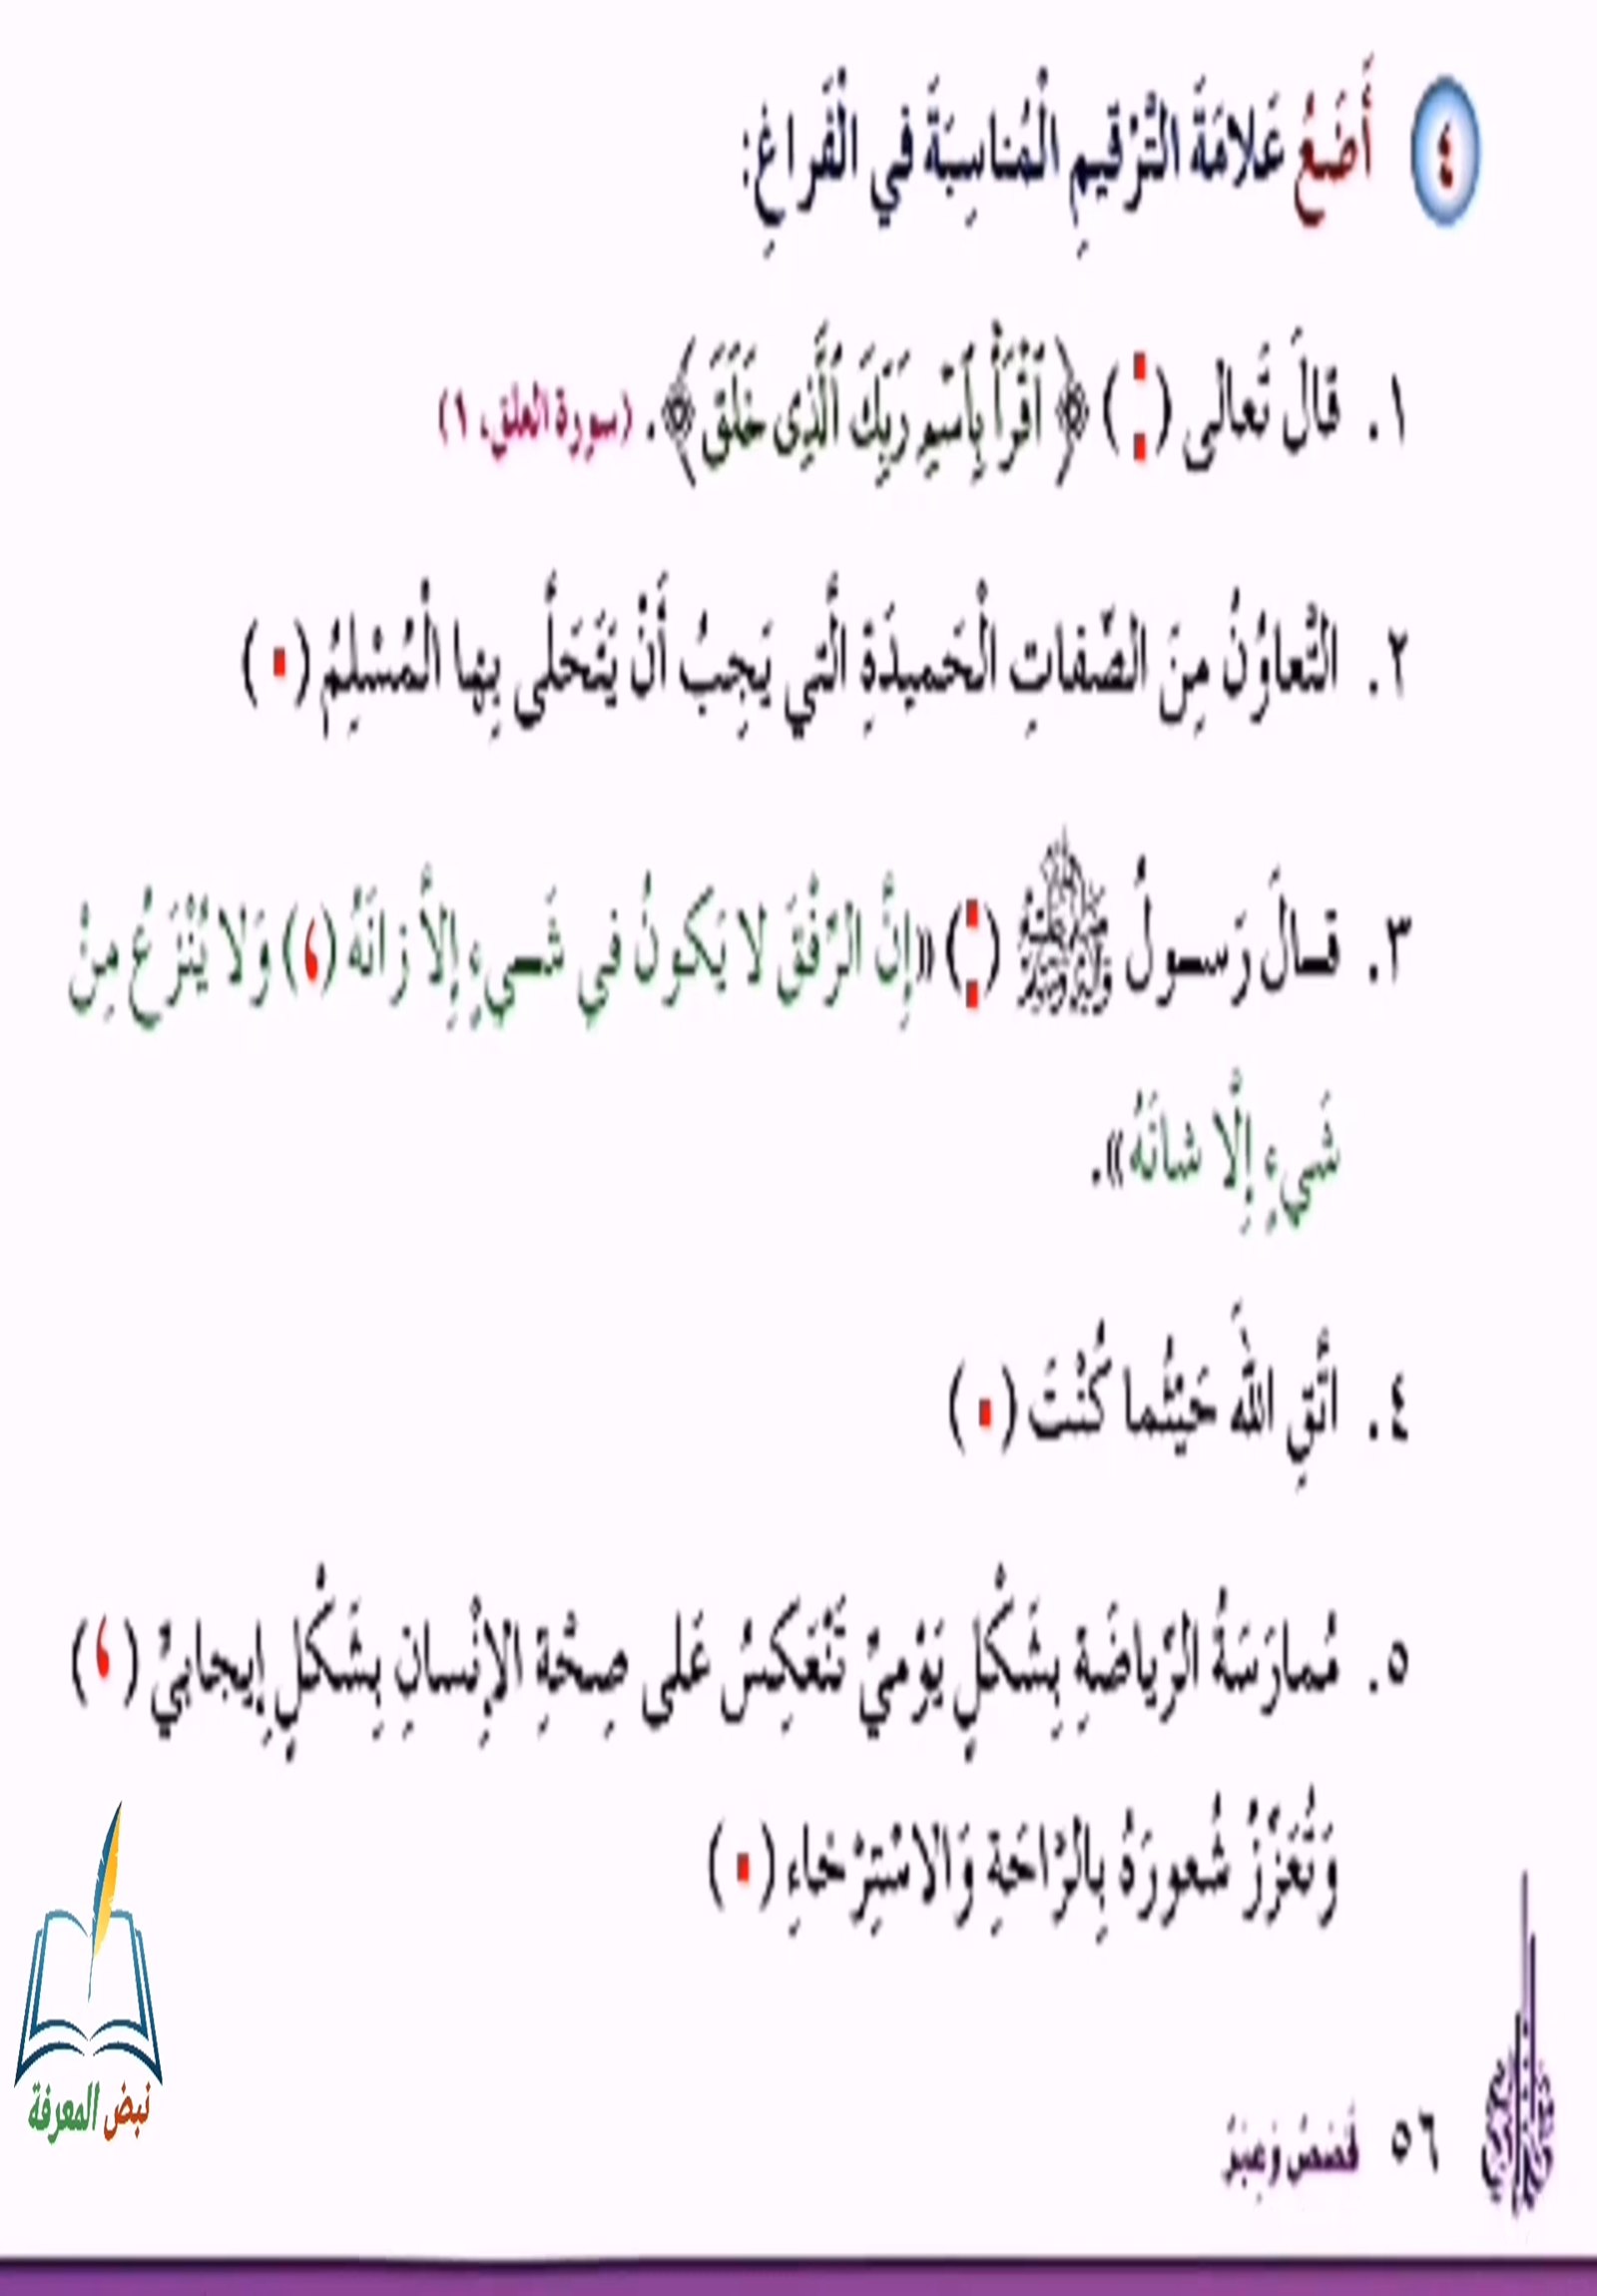 ٤ أَضَعُ عَلامَةَ التَّرْقيمِ الْمُناسِبَةَ في الْفَراغِ:
١. قالَ تَعالى (:) ﴿ ٱقْرَأْ بِٱسْمِ رَبِّكَ ٱلَّذِى خَلَقَ ﴾. (سورة العلق، ١)
٢. التَّعاوُنُ مِنَ الصِّفاتِ الْحَميدَةِ الَّتي يَجِبُ أَنْ يَتَحَلَّى بِها الْمُسْلِمُ (.)
٣. قالَ رَسولُ ﷺ (:) «إِنَّ الرِّفْقَ لا يَكونُ في شَيءٍ إِلاَّ زانَهُ (،) وَلا يُنْزَعُ مِنْ
شَيءٍ إِلَّا شانَهُ».
٤. اتَّقِ اللَّهَ حَيْثُما كُنْتَ (.)
٥. مُمارَسَةُ الرِّياضَةِ بِشَكْلٍ يَوْمِيٍّ تَنْعَكِسُ عَلى صِحَّةِ الإِنْسانِ بِشَكْلٍ إِيجابِيٍّ (،)
وَتُعَزِّزُ شُعورَهُ بِالرّاحَةِ وَالاسْتِرْخاءِ (.)
نبض المعرفة
٥٦ قَصَصٌ وَعِبَرٌ